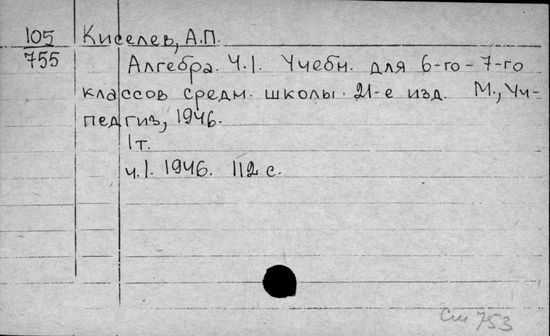 105 Киселев, А.П.
755 Алгебра. Ч.I. Учебн. для 6-го-7-го
классов средн. школы. 21-е изд. М., Уч-
педгиз, 1946.
1т.
ч.I. 1946. 112 с.
См 753